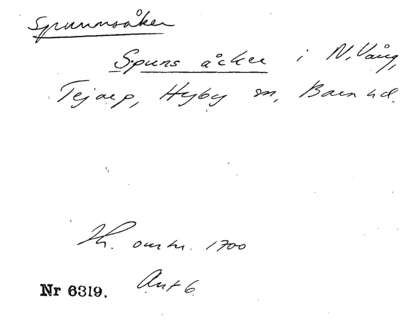 Spunnsåker
Spuns åcker i N. Vång,
Tejarp, Hyby sn, Bara hd.
Th. omkr. 1700
Ant 6.
Nr 6319.